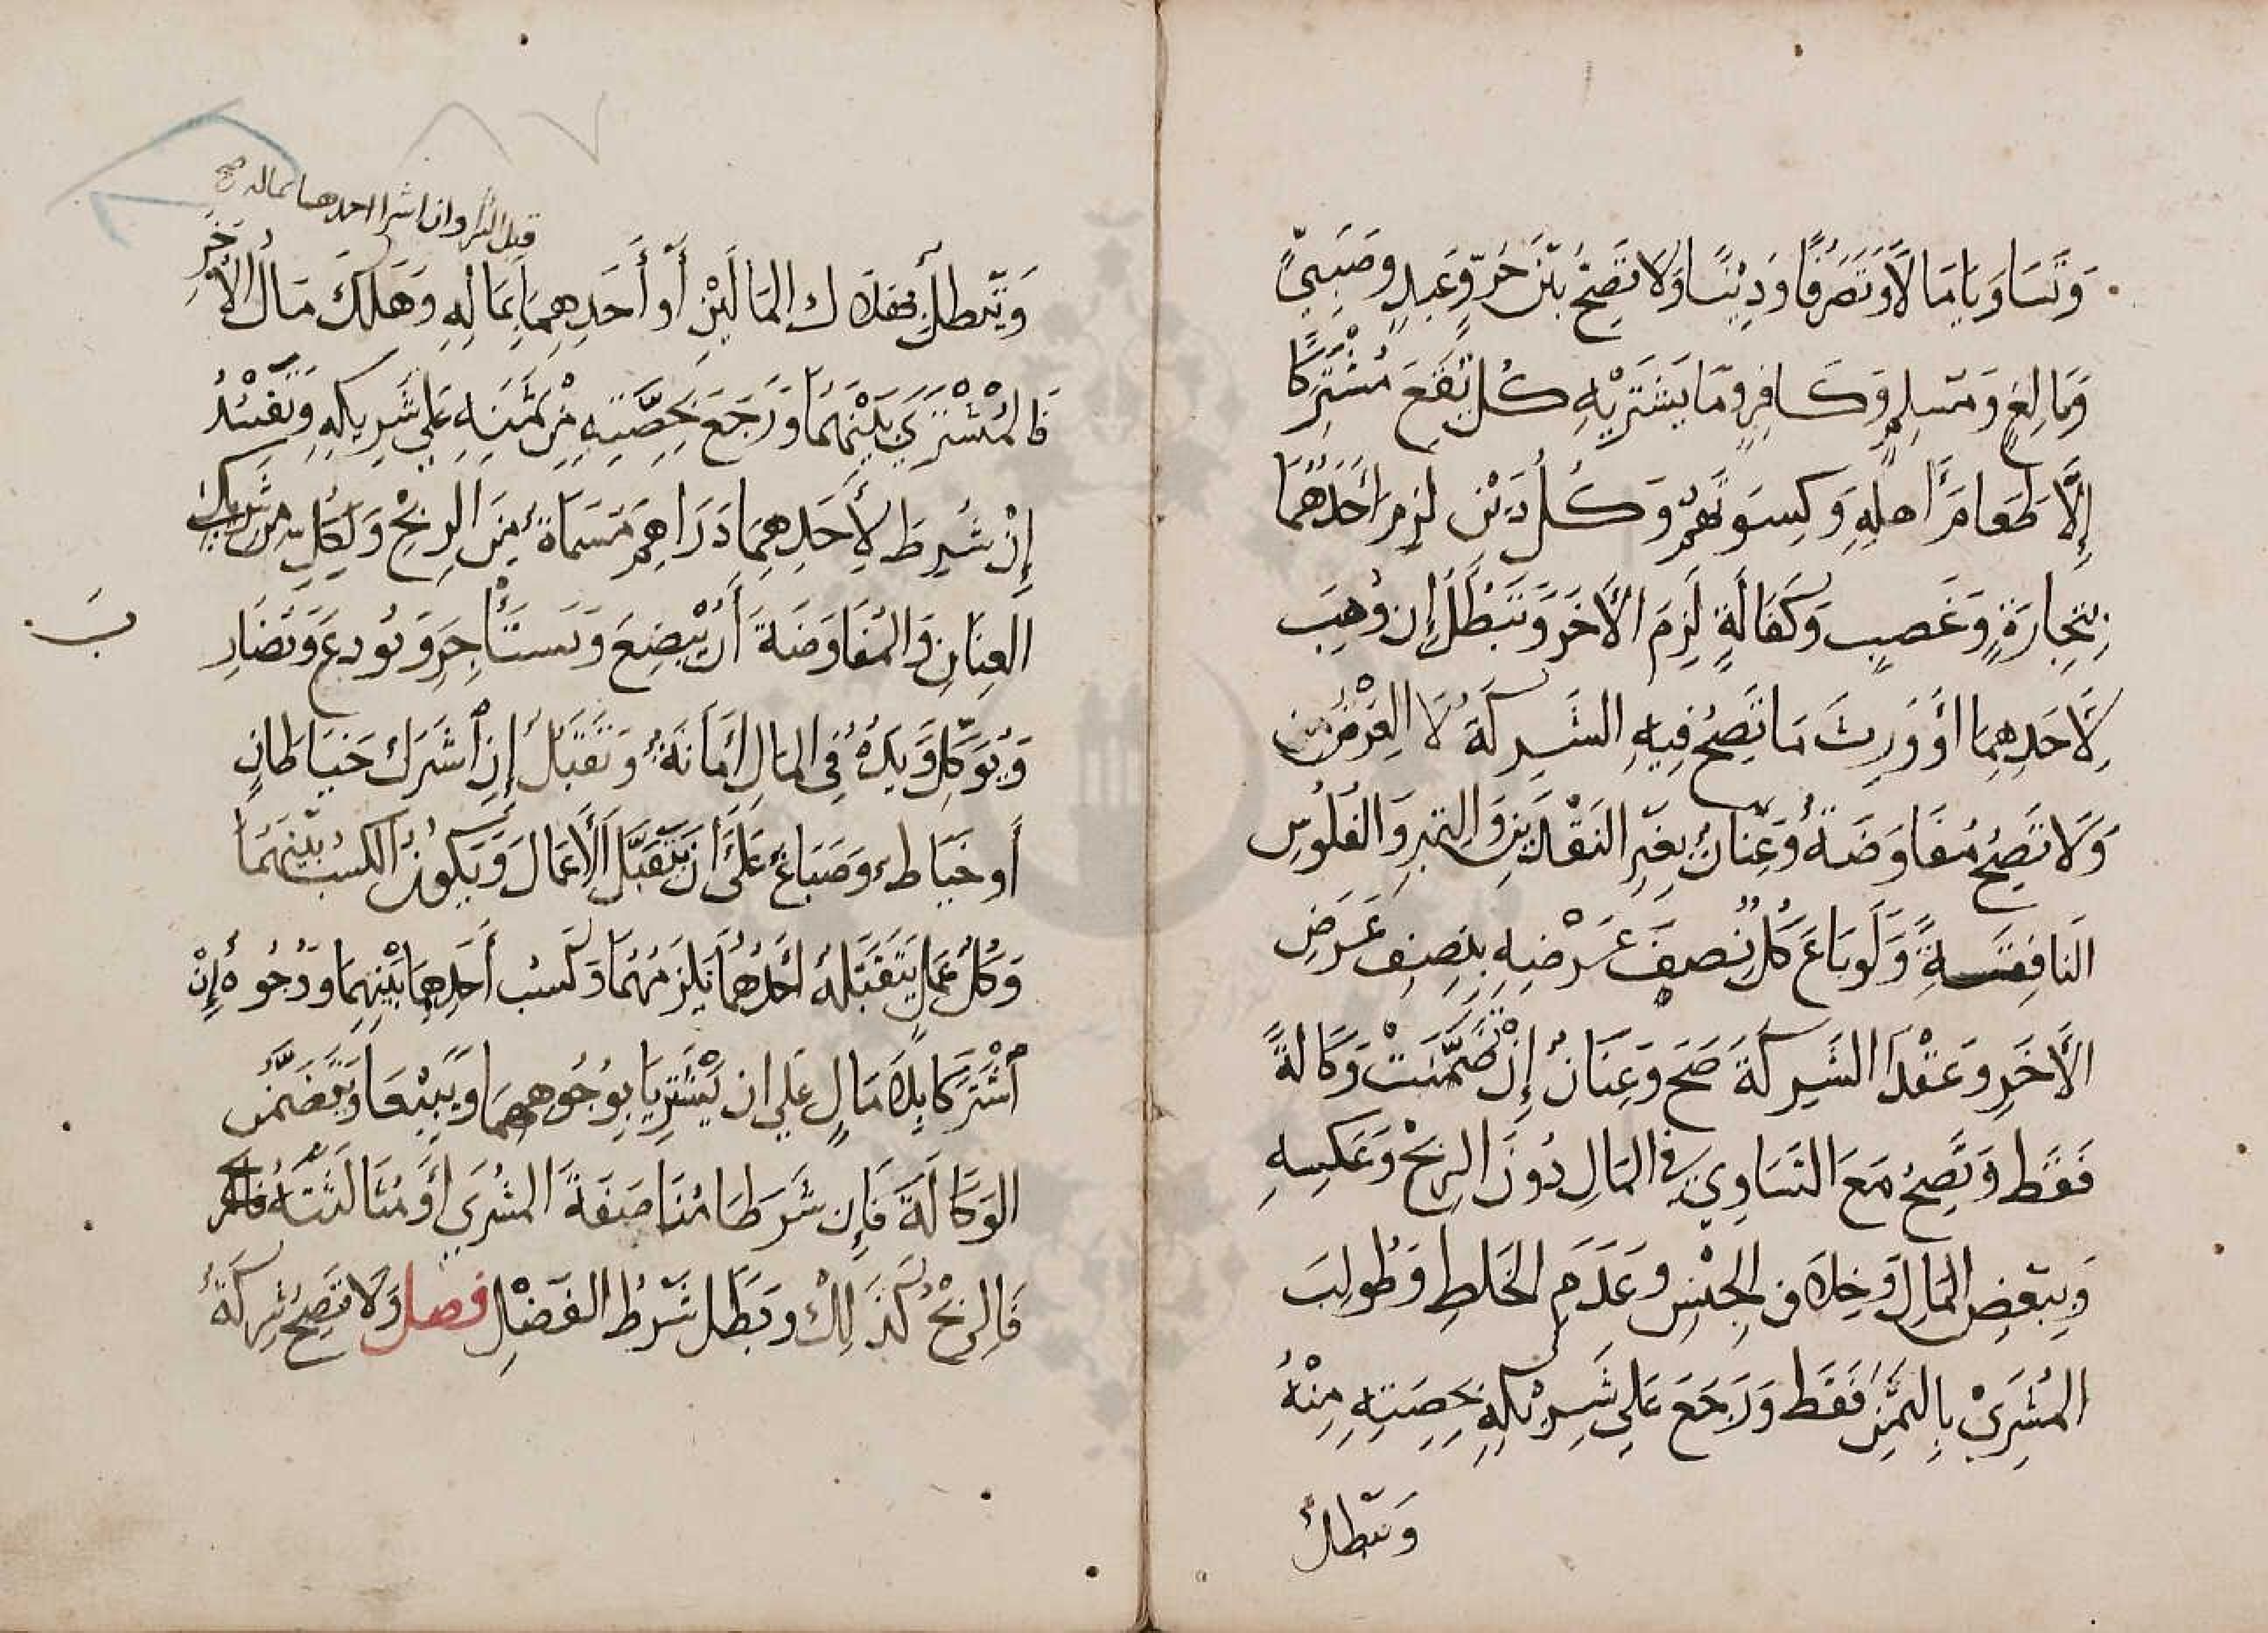 وَتَسَاوَيَا مَالًا وَتَصَرُّفًا وَدِيْنًا وَلَا تَصِحُّ بَيْنَ حُرٍّ وَعَبْدٍ وَصَبِيٍّ
وَبَالِغٍ وَمُسْلِمٍ وَكَافِرٍ وَمَا يَشْتَرِيْهِ كُلٌّ يَقَعُ مُشْتَرَكًا
إِلَّا طَعَامَ أَهْلِهِ وَكِسْوَتَهُمْ وَكُلُّ دَيْنٍ لَزِمَ أَحَدَهُمَا
بِتِجَارَةٍ وَغَصْبٍ وَكَفَالَةٍ لَزِمَ الْأَخَرَ وَتَبْطُلُ إِنْ وُهِبَ
لِأَحَدِهِمَا أَوْ وَرِثَ مَا تَصِحُّ فِيهِ الشَّرِكَةُ لَا الْعَرْضُ
وَلَا تَصِحُّ مُفَاوَضَةٌ وَعِنَانٌ بِغَيْرِ النَّقْدَيْنِ وَالتِّبْرِ وَالْفُلُوْسِ
النَّافِقَةِ وَلَوْ بَاعَ كُلٌّ نِصْفَ عَرْضِهِ بِنِصْفِ عَرَضِ
الْأَخَرِ وَعَقْدَا الشَّرِكَةَ صَحَّ وَعِنَانٌ إِنْ تَضَمَّنَتْ وَكَالَةً
فَقَط وَتَصِحُّ مَعَ التَّسَاوِيْ فِي الْمَالِ دُوْنَ الرِّبْحِ وَعَكْسِهِ
وَبِبَعْضِ الْمَالِ وَخِلَافِ الْجِنْسِ وَعَدَمِ الْخَلْطِ وَطُوْلِبَ
الْمُشْتَرِيْ بِالثَّمَنِ فَقَط وَرَجَعَ عَلَى شَرِيْكِهِ بِحِصَّتِهِ مِنْهُ
وَتَبْطُلُ
قبل الشراء وان اشترا احدهما بماله صح
وَتَبْطُلُ بِهَلَاكِ الْمَالَيْنِ أَوْ أَحَدِهِمَا بِمَالِهِ وَهَلَكَ مَالُ الْأَخَرِ
فَالْمُشْتَرَيْ بَيْنَهُمَا وَرَجَعَ بِحِصَّتِهِ مِنْ ثَمَنِهِ عَلَى شَرِيكِهِ وَتَفْسُدُ
إِنْ شُرِطَ لِأَحَدِهِمَا دَرَاهِمُ مُسَمَّاةٌ مِنَ الرِّبْحِ وَلِكُلٍّ مِنْ شَرِيكَيْ
الْعِنَانِ وَالْمُفَاوَضَةِ أَنْ يُبْضِعَ وَيَسْتَأْجِرَ وَيُوْدِعَ وَيُضَارِ
ب
وَيُوَكِّلَ وَيَدُهُ فِي الْمَالِ أَمَانَةٌ وَتَقَبُّلٌ إِنِ اشْتَرَكَ خَيَّاطَانِ
أَوْ خَيَّاطٌ وَصَبَّاغٌ عَلَى أَنْ يَتَقَبَّلَا الْأَعْمَالَ وَيَكُونُ الْكَسْبُ بَيْنَهُمَا
وَكُلُّ عَمَلٍ يَتَقَبَّلُهُ أَحَدُهُمَا يَلْزَمُهُمَا وَكَسْبُ أَحَدِهِمَا بَيْنَهُمَا وَوُجُوهٌ إِنْ
اشْتَرَكَا بِلَا مَالٍ عَلَى اَنْ يَشْتَرِيَا بِوُجُوهِهِمَا وَيَبِيْعَا وَتَتَضَمَّنُ
الْوَكَالَةَ فَإِنْ شَرَطَا مُنَاصَفَةَ الْمُشْتَرَي أَوْ مُثَالَثَتَهُ
فَالرِّبْحُ كَذَلِكَ وَبَطَلَ شَرْطُ الْفَضْلِ فصل وَلَا تَصِحُّ شِرْكَةٌ